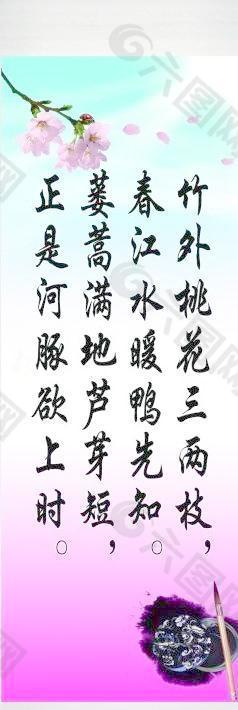 竹外桃花三两枝，
春江水暖鸭先知。
蒌蒿满地芦芽短，
正是河豚欲上时。
六图网